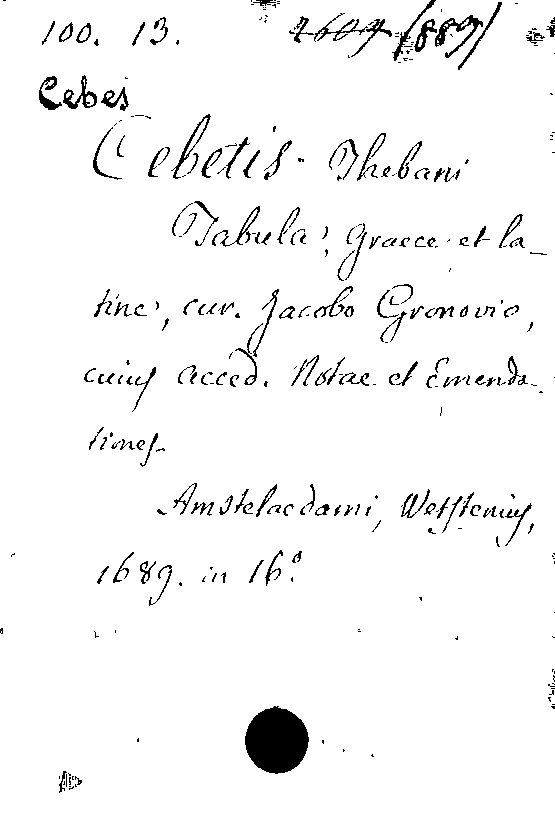 100. 13. 2609 (889)
Cebes
Cebetis Thebani
Tabula, Graece et la-
tine, cur. Jacobo Gronovio,
cuius acced. Notae et Emenda-
tiones.
Amstelaedami, Wetstenius,
1689. in 16º